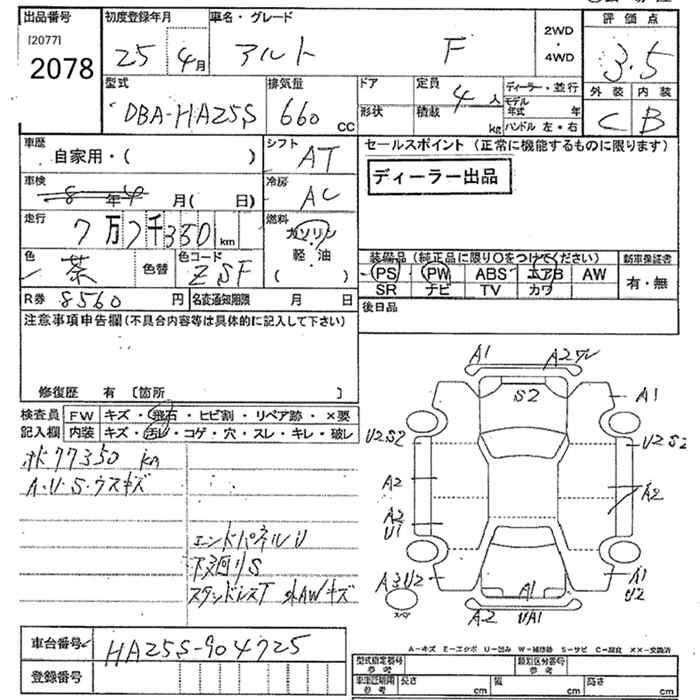 出品番号 初度登録年月 車名・グレード 評価点
[2077]
2078
25年 4月 アルト F 2WD・4WD 3.5
型式 排気量 ドア 定員 ディーラー・並行 外装 内装
DBA-HA25S 660 CC 形状 積載 4人 kg モデル年式 年 C B
ハンドル 左・右
車歴 シフト セールスポイント (正常に機能するものに限ります)
自家用・( ) AT
ディーラー出品
車検 冷房
8年 月( 日) AC
走行 燃料
7万7千350km ガソリン・軽油 ( )
色 色替 色コード
茶 ZSF
装備品 (純正品に限り○をつけてください) 新車保証書
PS PW ABS エアB AW 有・無
SR ナビ TV カワ
R券 8560円 名変通知期限 月 日 後日品
注意事項申告欄(不具合内容等は具体的に記入して下さい)
修復歴 有 [箇所 ]
検査員 FW キズ・飛石・ヒビ割・リペア跡・×要
記入欄 内装 キズ・汚れ・コゲ・穴・スレ・キレ・破レ
77350 km
A・U・S・ウスキズ
エンドパネルU
下廻りS
スタッドレスT AWキズ
A1 A2ワレ
S2
A1
U2S2 U2S2
A2 A2
A2
U1
A3U2 A1
U2
A1
A2 UA1
スペア
車台番号 HA25S-904725
登録番号
A-キズ E-エクボ U-凹み W-補修跡 S-サビ C-腐食 ××-交換済
型式指定番号 参考 類別区分番号 参考
車車証明用 参考 長さ cm 幅 cm 高さ cm